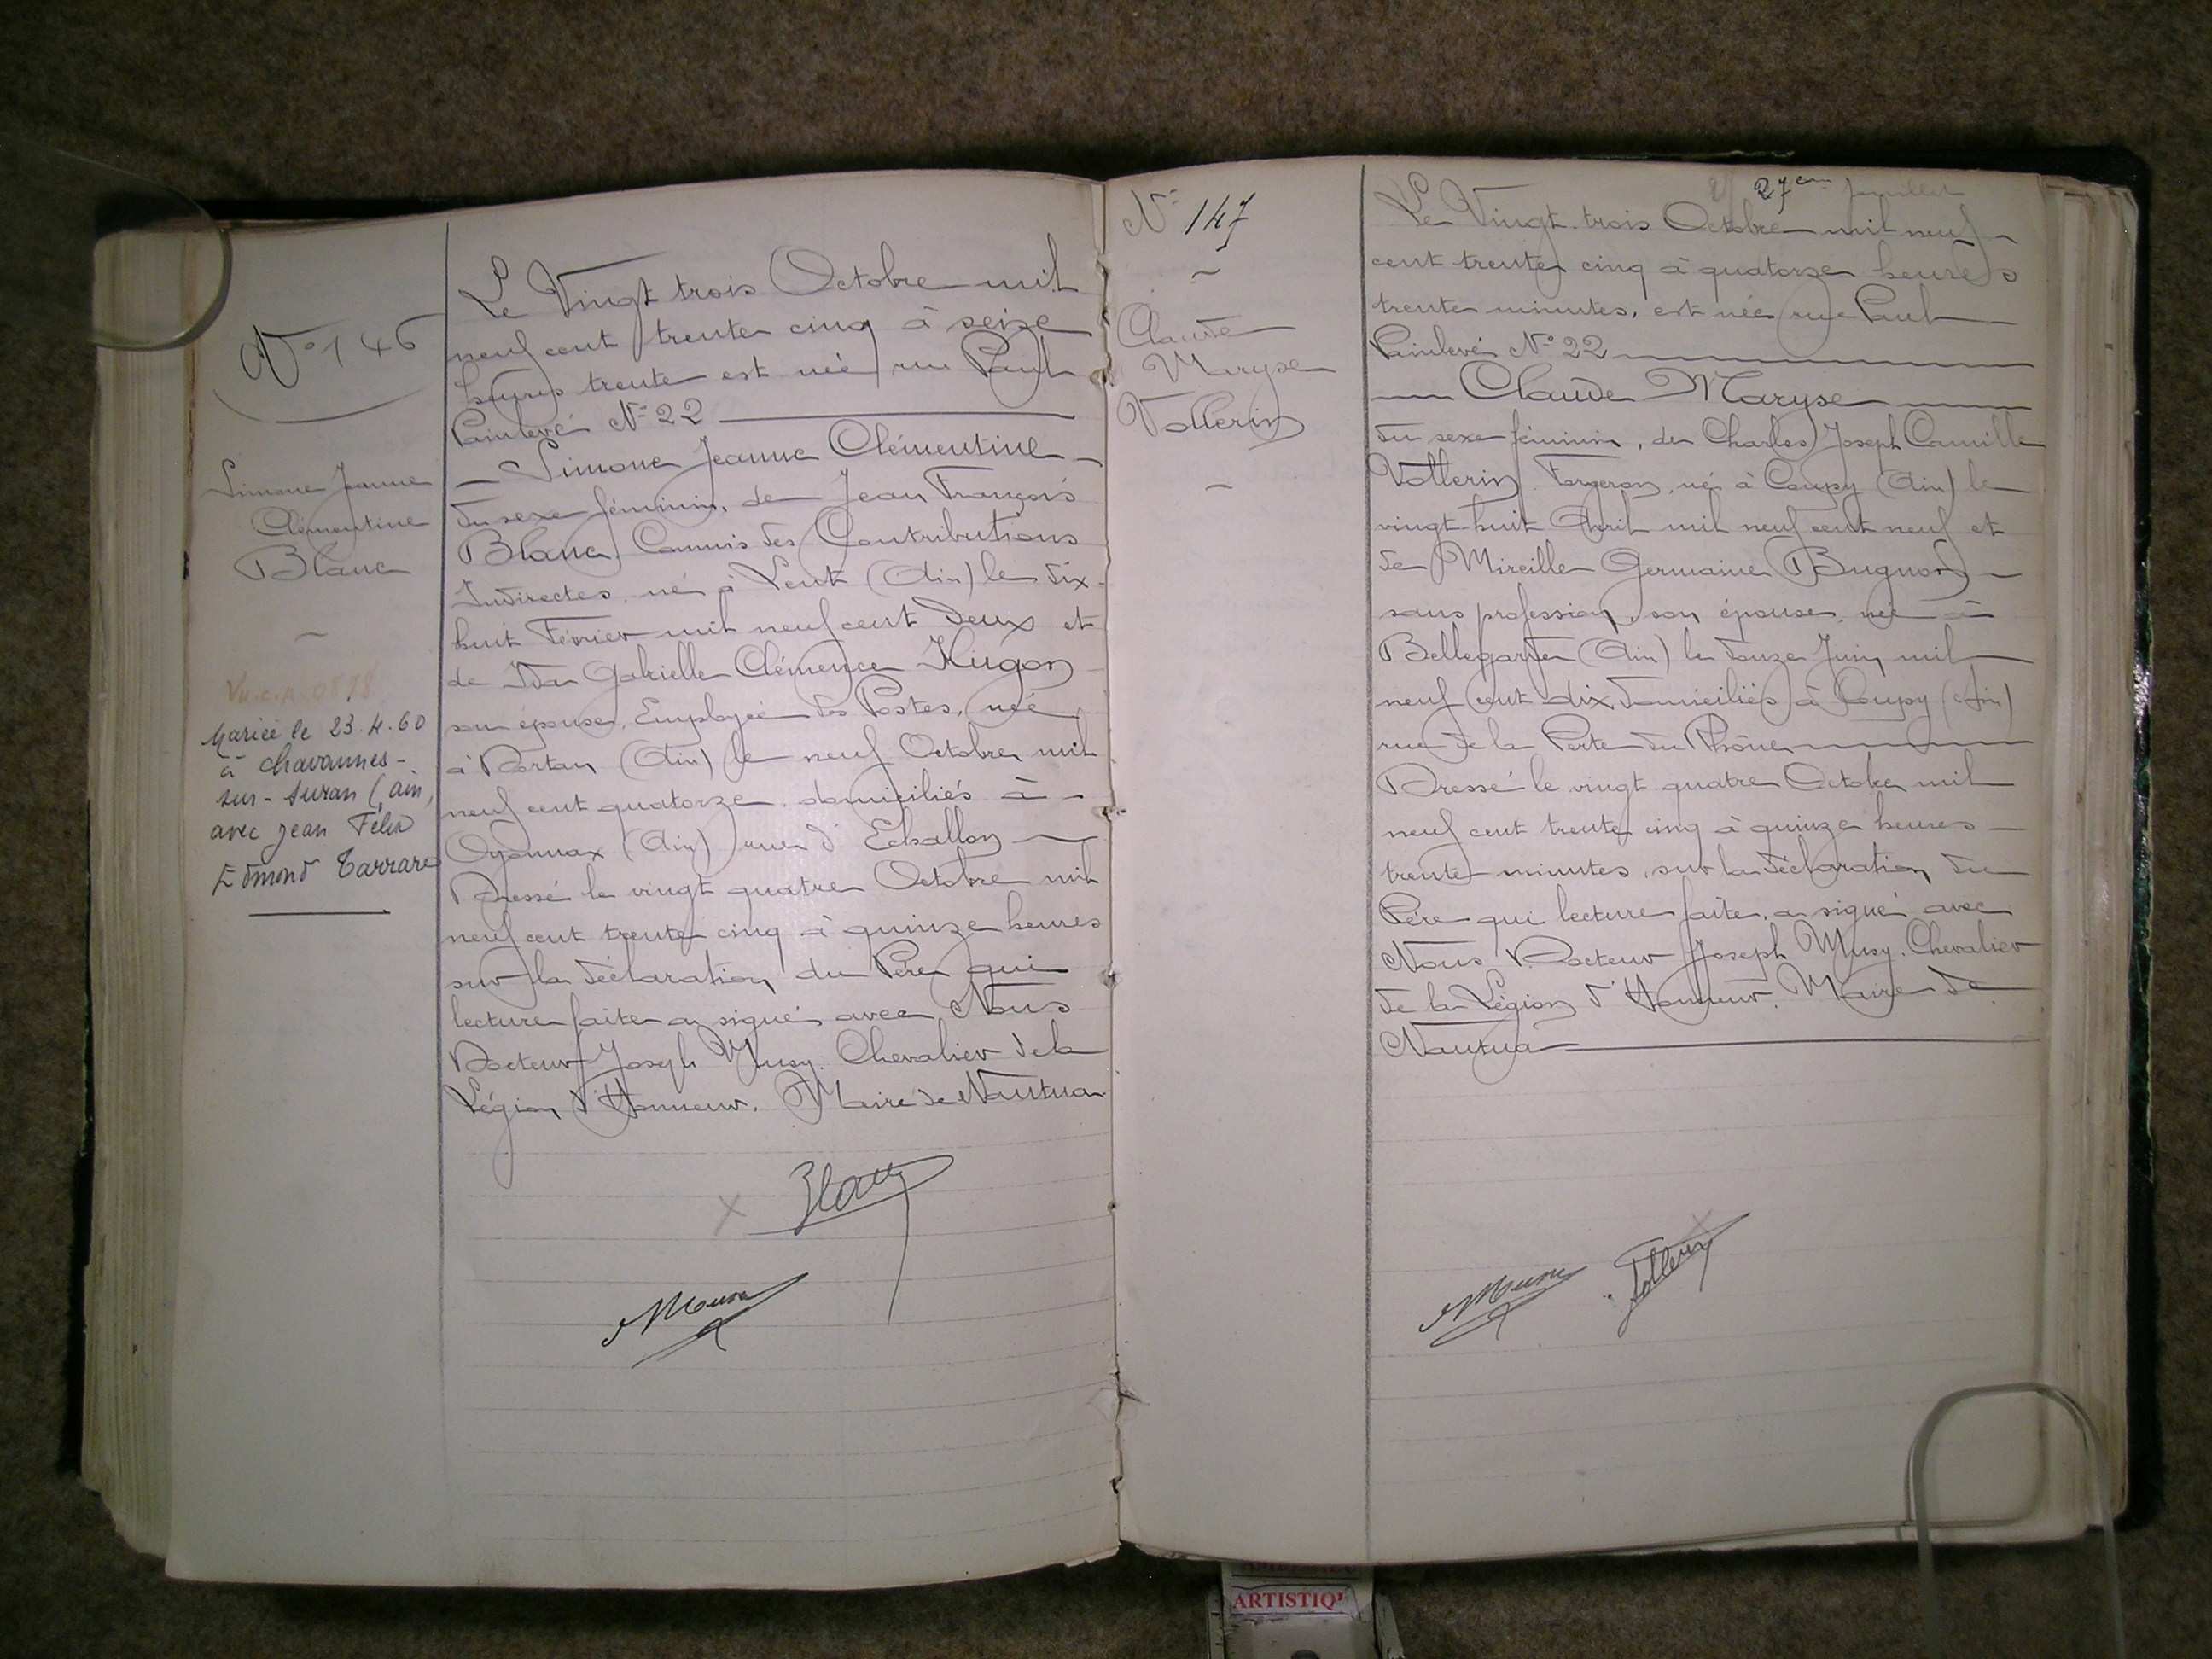 N° 146
Simone Jeanne
Clémentine
Blanc
Mariée le 23.4.60
à Chavannes-
sur-Suran (Ain)
avec Jean Félix
Edmond Tarrare
Le Vingt trois Octobre mil
neuf cent trente cinq à seize
heures trente est née rue Paul
Painlevé N° 22
Simone Jeanne Clémentine
du sexe féminin, de Jean François
Blanc, Commis des Contributions
Indirectes, né à Lent (Ain) le dix-
huit Février mil neuf cent deux et
de Ida Gabrielle Clémence Hugon
son épouse, Employée des Postes, née
à Dortan (Ain) le neuf Octobre mil
neuf cent quatorze, domiciliés à
Oyonnax (Ain) rue d'Echallon
Dressé le vingt quatre Octobre mil
neuf cent trente cinq à quinze heures
sur la déclaration du Père qui
lecture faite a signé avec Nous
Docteur Joseph Musy, Chevalier de la
Légion d'Honneur, Maire de Nantua
Blanc
N° 147
Claude
Maryse
Vollerin
27em feuillet
Le Vingt-trois Octobre mil neuf
cent trente cinq à quatorze heures
trente minutes, est née rue Paul
Painlevé N° 22
Claude Maryse
du sexe féminin, de Charles Joseph Camille
Vollerin, Forgeron, né à Coupy (Ain) le
vingt-huit Avril mil neuf cent neuf et
de Mireille Germaine Bugnon
sans profession, son épouse, née à
Bellegarde (Ain) le douze Juin mil
neuf cent dix domiciliés à Coupy (Ain)
rue de la Perte du Rhône
Dressé le vingt quatre Octobre mil
neuf cent trente cinq à quinze heures
trente minutes, sur la déclaration du
Père qui lecture faite, a signé avec
Nous Docteur Joseph Musy, Chevalier
de la Légion d'Honneur, Maire de
Nantua
Vollerin
ARTISTIQ